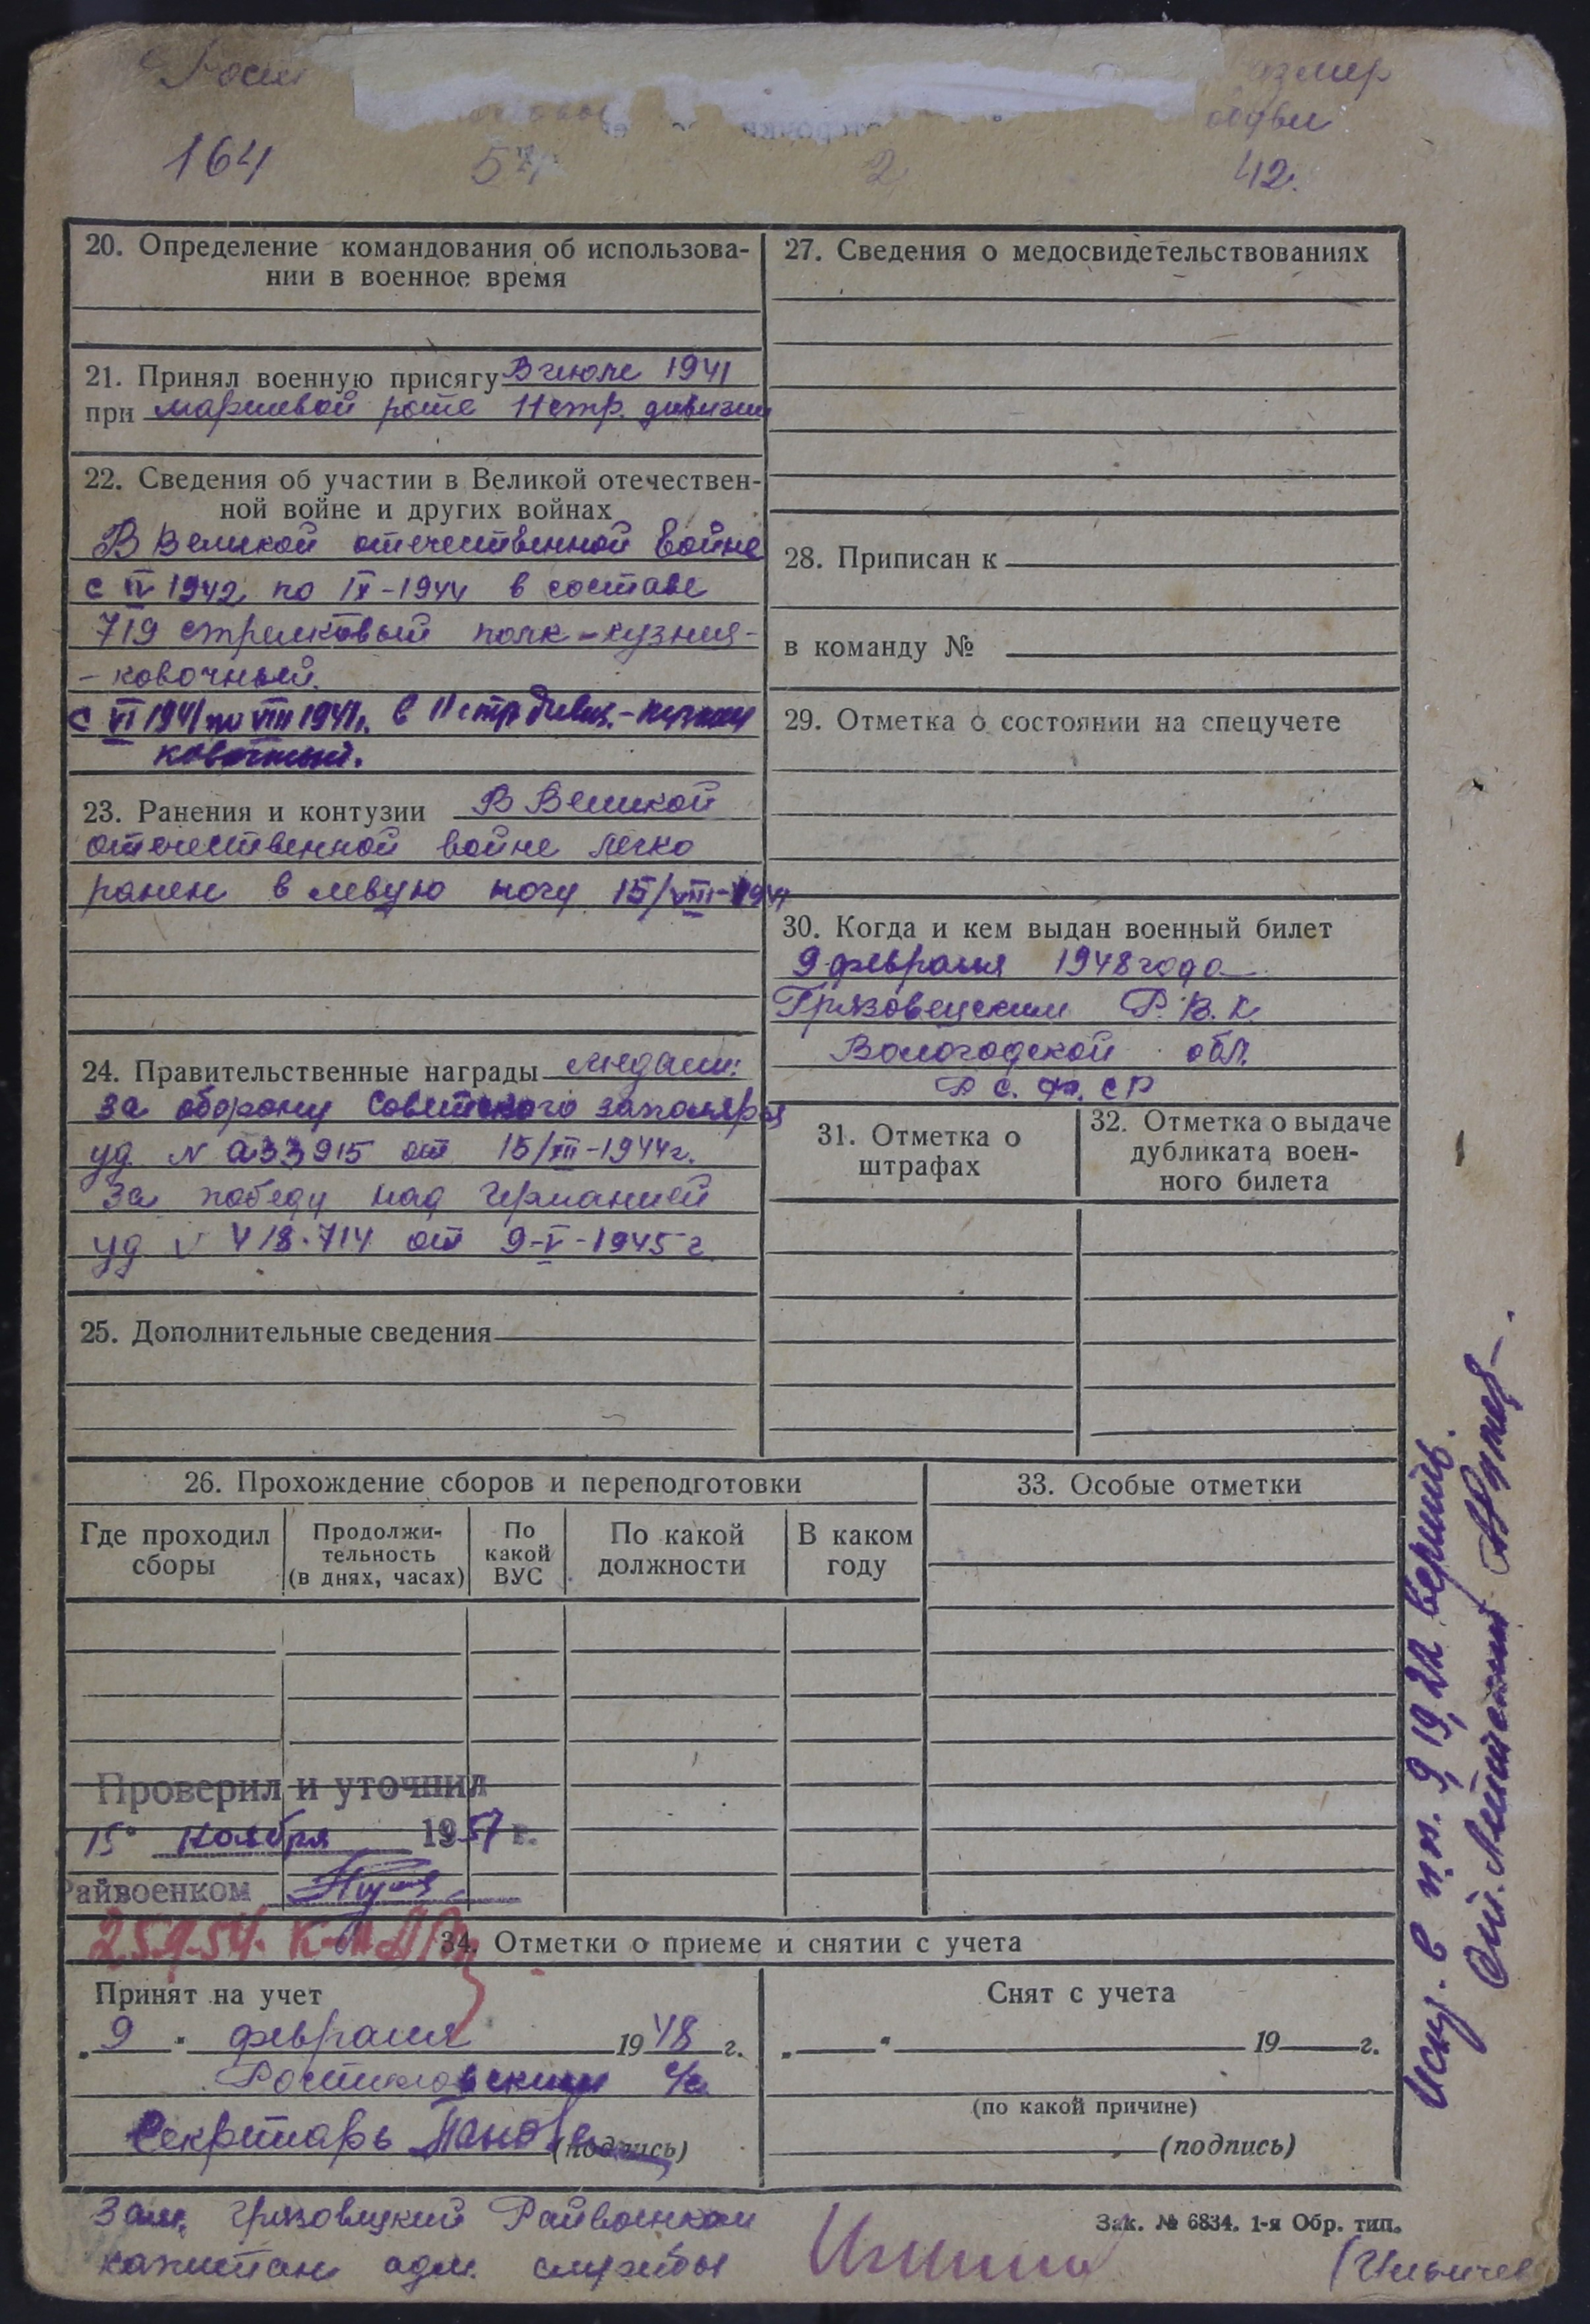 Рост
размер
обуви
164
57
2
42.
20. Определение командования об использова-
нии в военное время
21. Принял военную присягу В июле 1941
при маршевой роте 11 стр. дивизии
22. Сведения об участии в Великой отечествен-
ной войне и других войнах
В Великой отечественной войне
с IV 1942 по IX-1944 в составе
719 стрелковый полк - кузнец-
- ковочный.
с VI 1941 по VIII 1941г. в 11 стр дивиз. - кузнец
ковочный.
23. Ранения и контузии В Великой
отечественной войне легко
ранен в левую ногу 15/VIII-1941
24. Правительственные награды медали:
за оборону Советского заполярья
уд. N а33915 от 15/XII-1944г.
За победу над Германией
уд N 418.714 от 9-V-1945 г
25. Дополнительные сведения
26. Прохождение сборов и переподготовки
Где проходил сборы
Продолжи-тельность (в днях, часах)
По какой ВУС
По какой должности
В каком году
Проверил и уточнил
15" ноября 1957 г.
Райвоенком
27. Сведения о медосвидетельствованиях
28. Приписан к
в команду №
29. Отметка о состоянии на спецучете
30. Когда и кем выдан военный билет
9 февраля 1948 года
Грязовецким Р.В.К.
Вологодской обл.
Р.С.Ф.СР
31. Отметка о штрафах
32. Отметка о выдаче дубликата воен-ного билета
33. Особые отметки
34. Отметки о приеме и снятии с учета
Принят на учет
„9" февраля 1948 г.
Ростиловским с/с
Секретарь Панова
(подпись)
Снят с учета
„ " 19 г.
(по какой причине)
(подпись)
Зам. Грязовецкий Райвоенком
капитан адм. службы
(Ильичев
Зак. № 6834. 1-я Обр. тип.
в п.п. 9, 19, 22 верить.